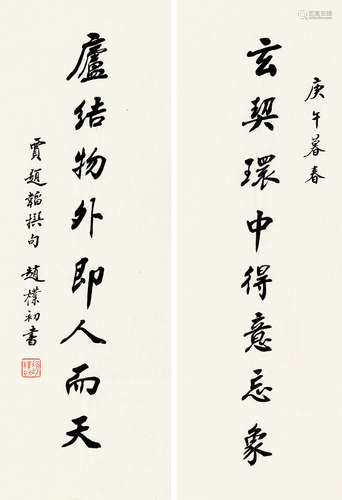 庚午暮春
玄契環中得意忘象
廬結物外即人而天
賈題韜撰句 趙樸初書